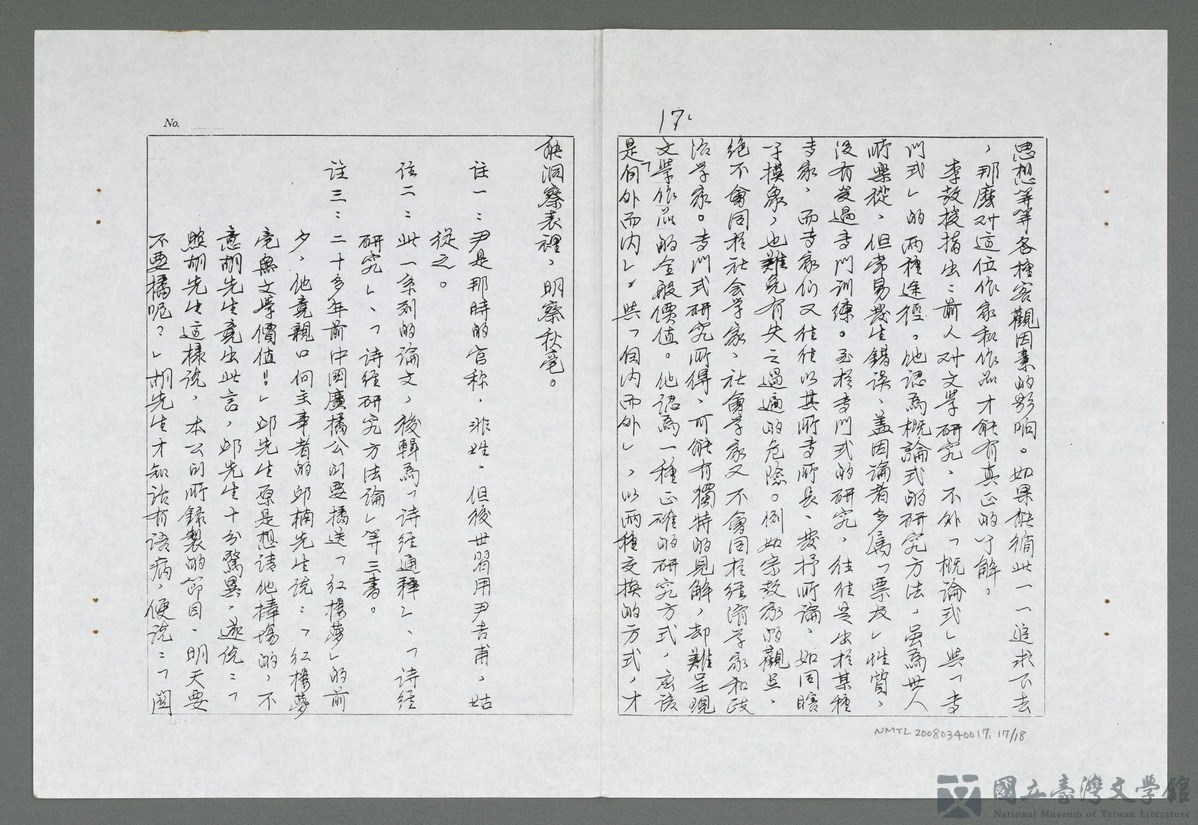 17.
思想等等各種客觀因素的影响。如果能循此一一追求下去
，那麼对這位作家和作品才能有真正的了解。
李教授指出：前人对文学研究、不外「概論式」與「专
门式」的两種途徑。他認為概論式的研究方法，虽為世人
所樂從、但常易發生錯誤、蓋因論者多属「票友」性質、
没有受過专门訓練。至於专门式的研究，往往是出於某種
专家、而专家们又往往以其所专所長、發抒所論、如同瞎
子摸象，也難免有失之過通的危險。例如宗教家的觀点，
絕不會同於社会学家、社會学家又不會同於經濟学家和政
治学家。专门式研究所得、可能有獨特的見解，却難呈現
文學作品的全般價值。他認為一種正確的研究方式，应該
是「向外而内」，與「向内而外」，以两種交換的方式，才
能洞察表裡、明察秋毫。
註一：尹是那時的官称、非姓、但後世習用尹吉甫，姑
從之。
註二：此一系列的論文，後輯為「詩經通釋」、「詩經
研究」、「詩經研究方法論」等三書。
註三：二十多年前中國廣播公司要播送「红樓夢」的前
夕，他竟親口向主事者的邱楠先生說：「红樓夢
竟無文学價值！」邱先生原是想請他捧場的，不
意胡先生竟出此言，邱先生十分驚異，遂說：「
照胡先生這樣說，本公司所録製的節目、明天要
不要播呢？」胡先生才知話有语病，便說：「國
No.
NMTL 20080340017, 17/18
國立臺灣文學館
National Museum of Taiwan Literature